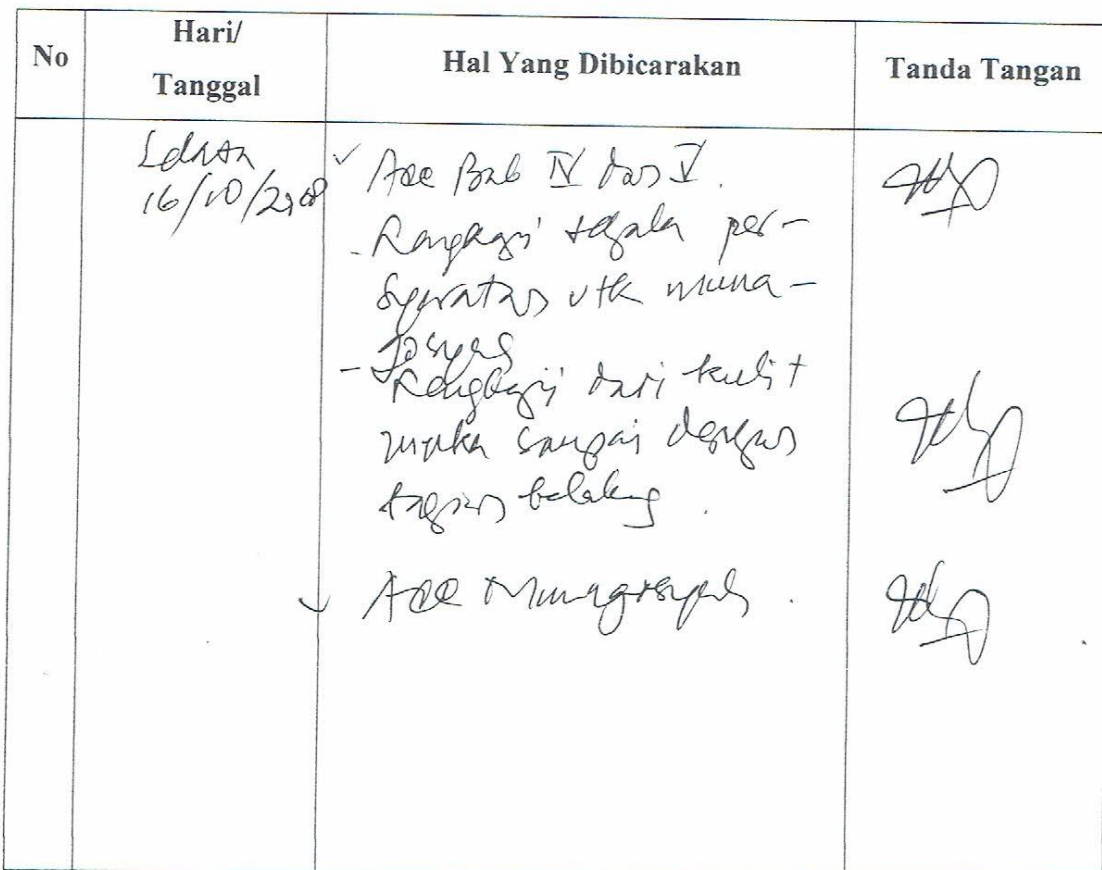 No
Hari/
Tanggal
Hal Yang Dibicarakan
Tanda Tangan
Selasa
16/10/2018
✓ Acc Bab IV dan V.
- Lengkapi segala per-
syaratan utk muna-
qosyah
- Lengkapi dari kulit
muka sampai dengan
bagian belakang.
✓ Acc Munaqosyah.